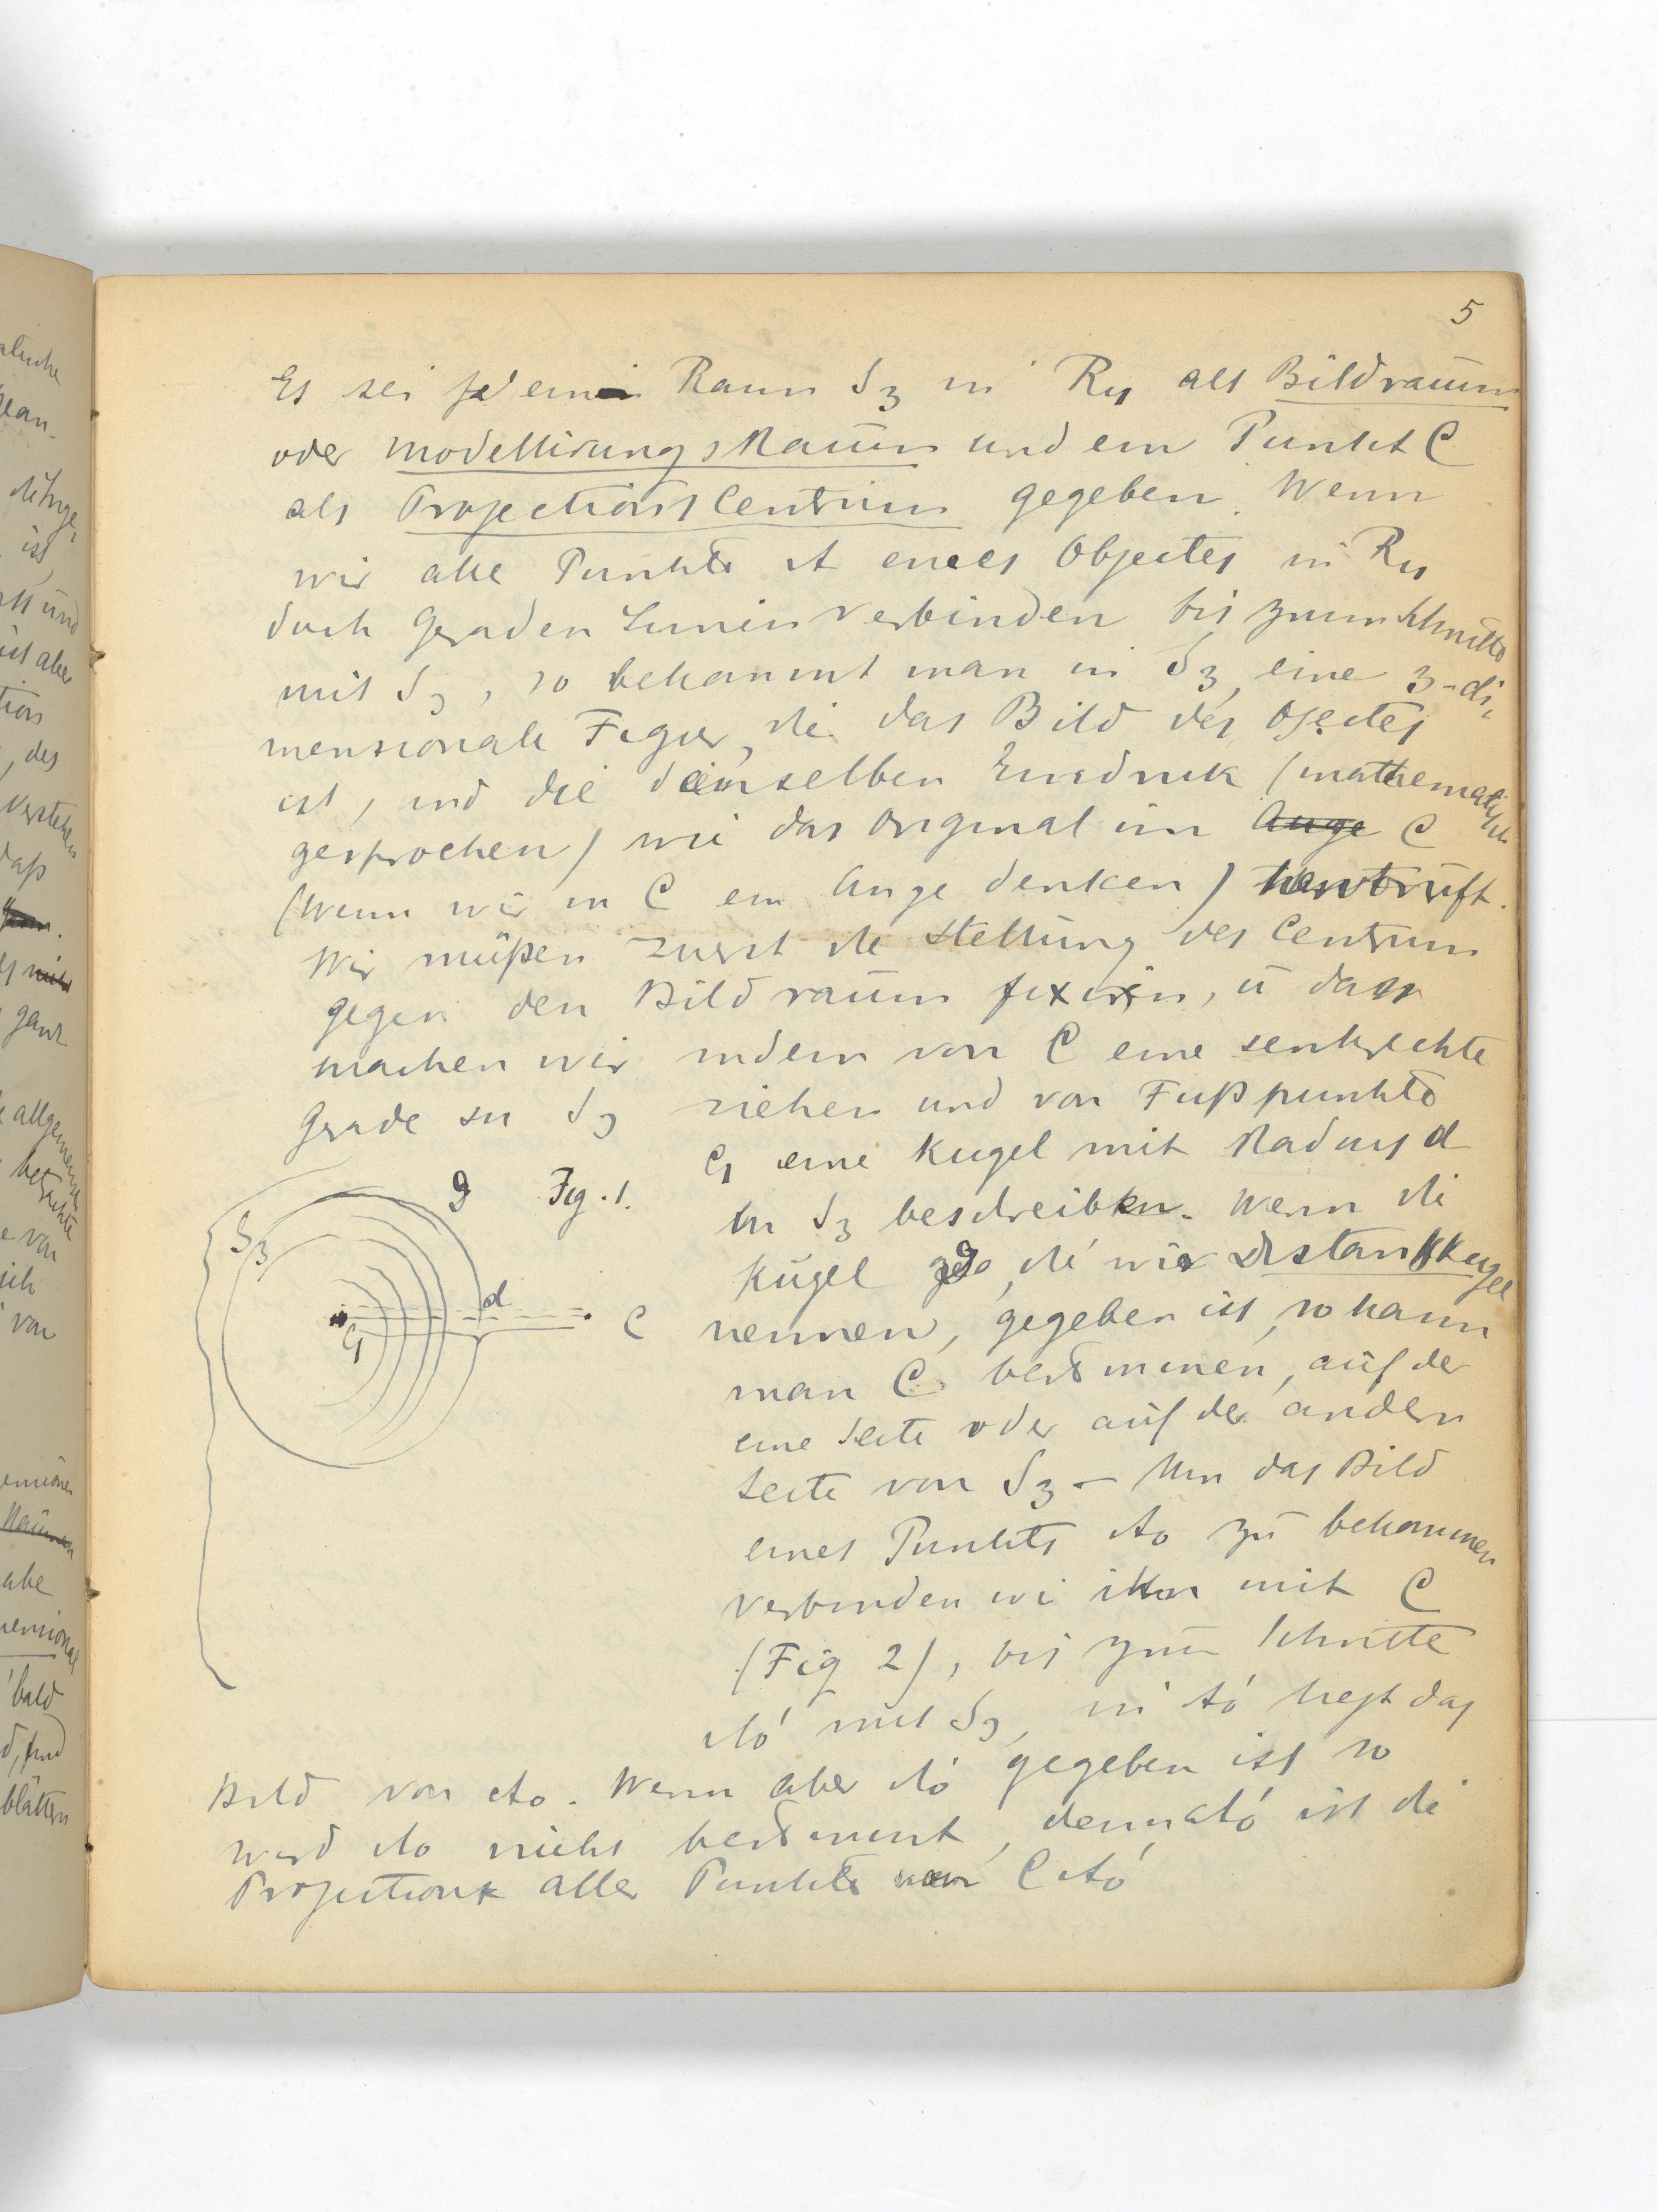 5
Es sei ein Raum S3 in R4 als Bildraum
oder Modellirungsraum und ein Punkt C
als Projections Centrum gegeben. Wenn
wir alle Punkte A eines Objectes in R4
durch geraden Linien verbinden bis zum Schnitte
mit S3, so bekommt man in S3, eine 3-di-
mensionale Figur, die das Bild des Ojectes
ist, und die denselben Eindruk (mathematisch
gesprochen) wie das Original im Auge C
(Wenn wir in C ein Auge denken)
Wir müßen zuerst die Stellung des Centrum
gegen den Bildraum fixiren, ü das
machen wir indem von C eine senkrechte
Grade zu S3 ziehen und von Fußpunkte
C1 eine Kugel mit Radius d
g Fig. 1.
in S3 beschreiben. Wenn die
S3
Kugel g, die wir Distanzkugel
d
C nennen, gegeben ist, so kann
C1
man C bestimmen, auf der
eine Seite oder auf der andern
Seite von S3 – Um das Bild
eines Punkts Ao zu bekommen
verbinden wi ihn mit C
(Fig 2), bis zum Schnitte
Ao' mit S3, in Ao' liegt das
Bild von Ao. Wenn aber Ao' gegeben ist so
wird Ao nicht bestimmt, denn Ao' ist die
Projection aller Punkte von C Ao'
atische
gean-
ist
und
ist aber
tion
, des
verstehen
daß
ganz
allgemeine
betrachte
e von
sich
von
abe
bald
blättern